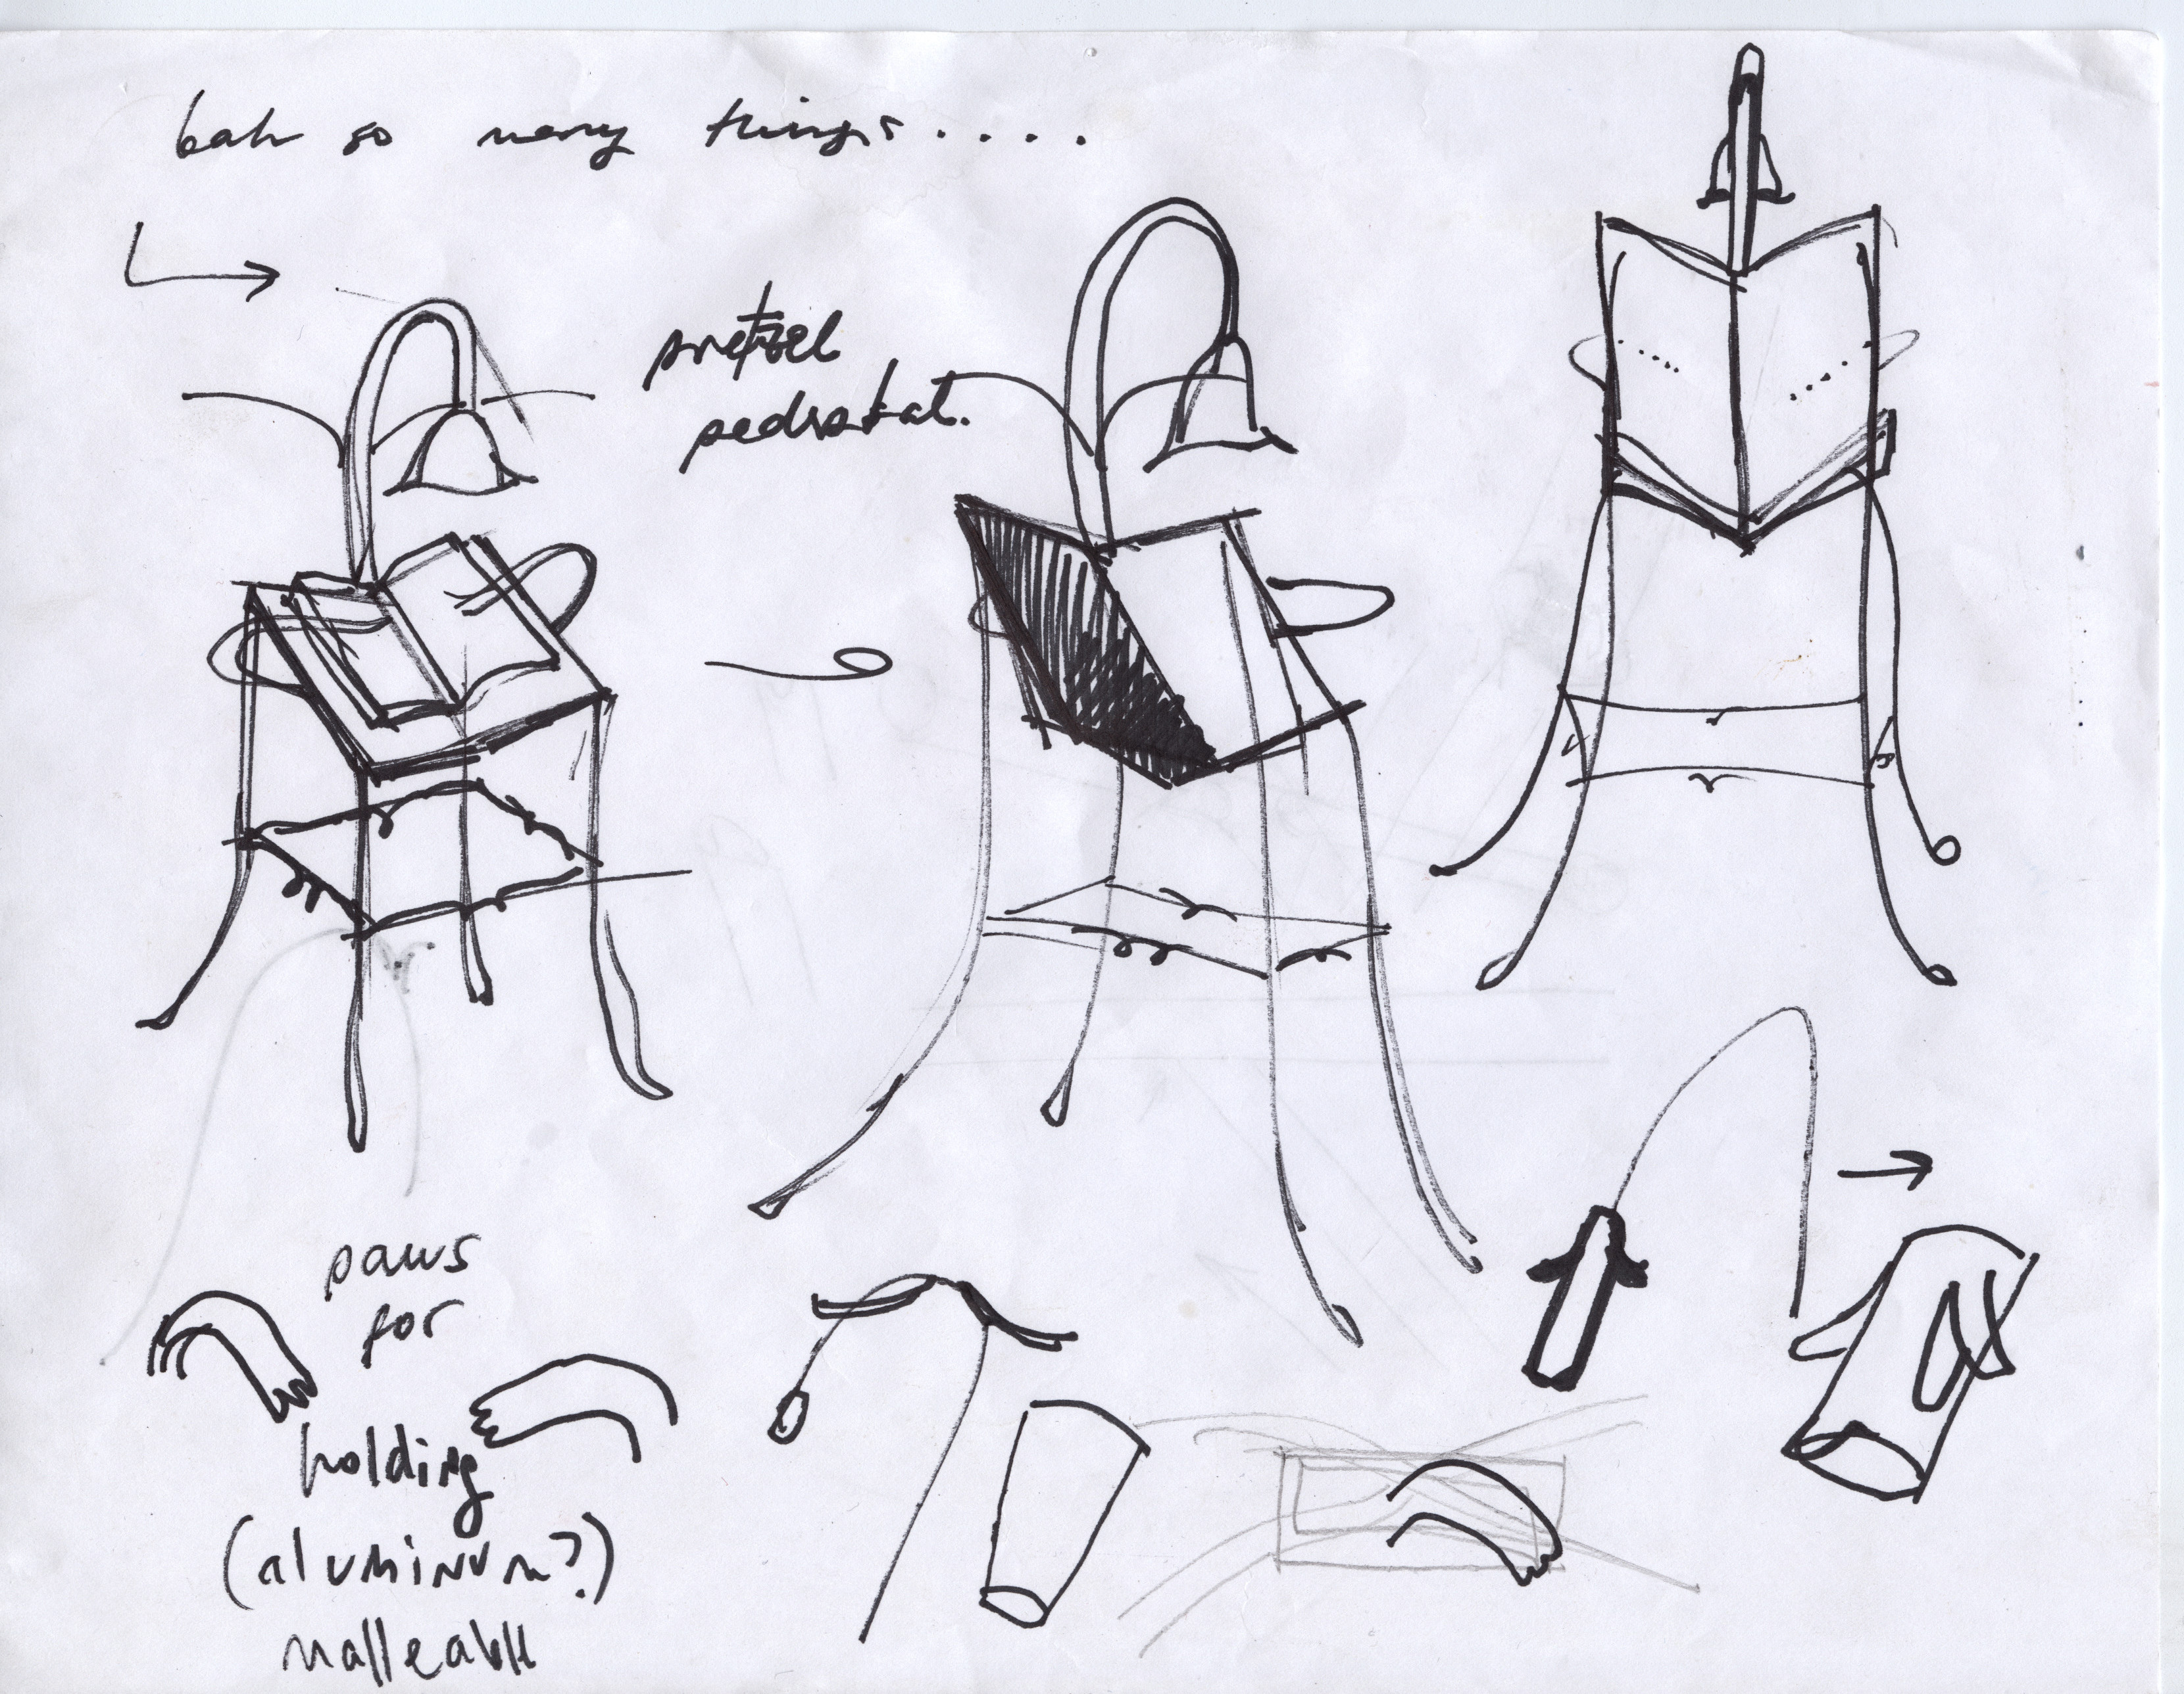 bah so many things.....
pretzel
pedistal.
paws
for
holding
(aluminum?)
malleable